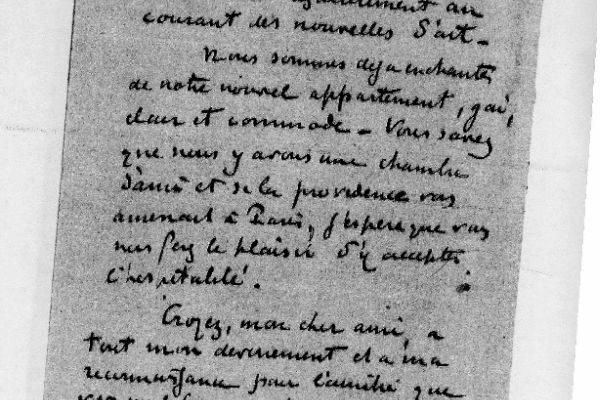 également au
courant des nouvelles d'art -
Nous sommes deja enchantés
de notre nouvel appartement, gai,
clair et commode - Vous savez
que nous y avons une chambre
d'ami et si la providence vous
amenait à Paris, j'espère que vous
nous ferez le plaisir d'y accepter
l'hospitalité.
Croyez, mon cher ami, a
tout mon devouement et a ma
reconnaissance pour l'amitié que